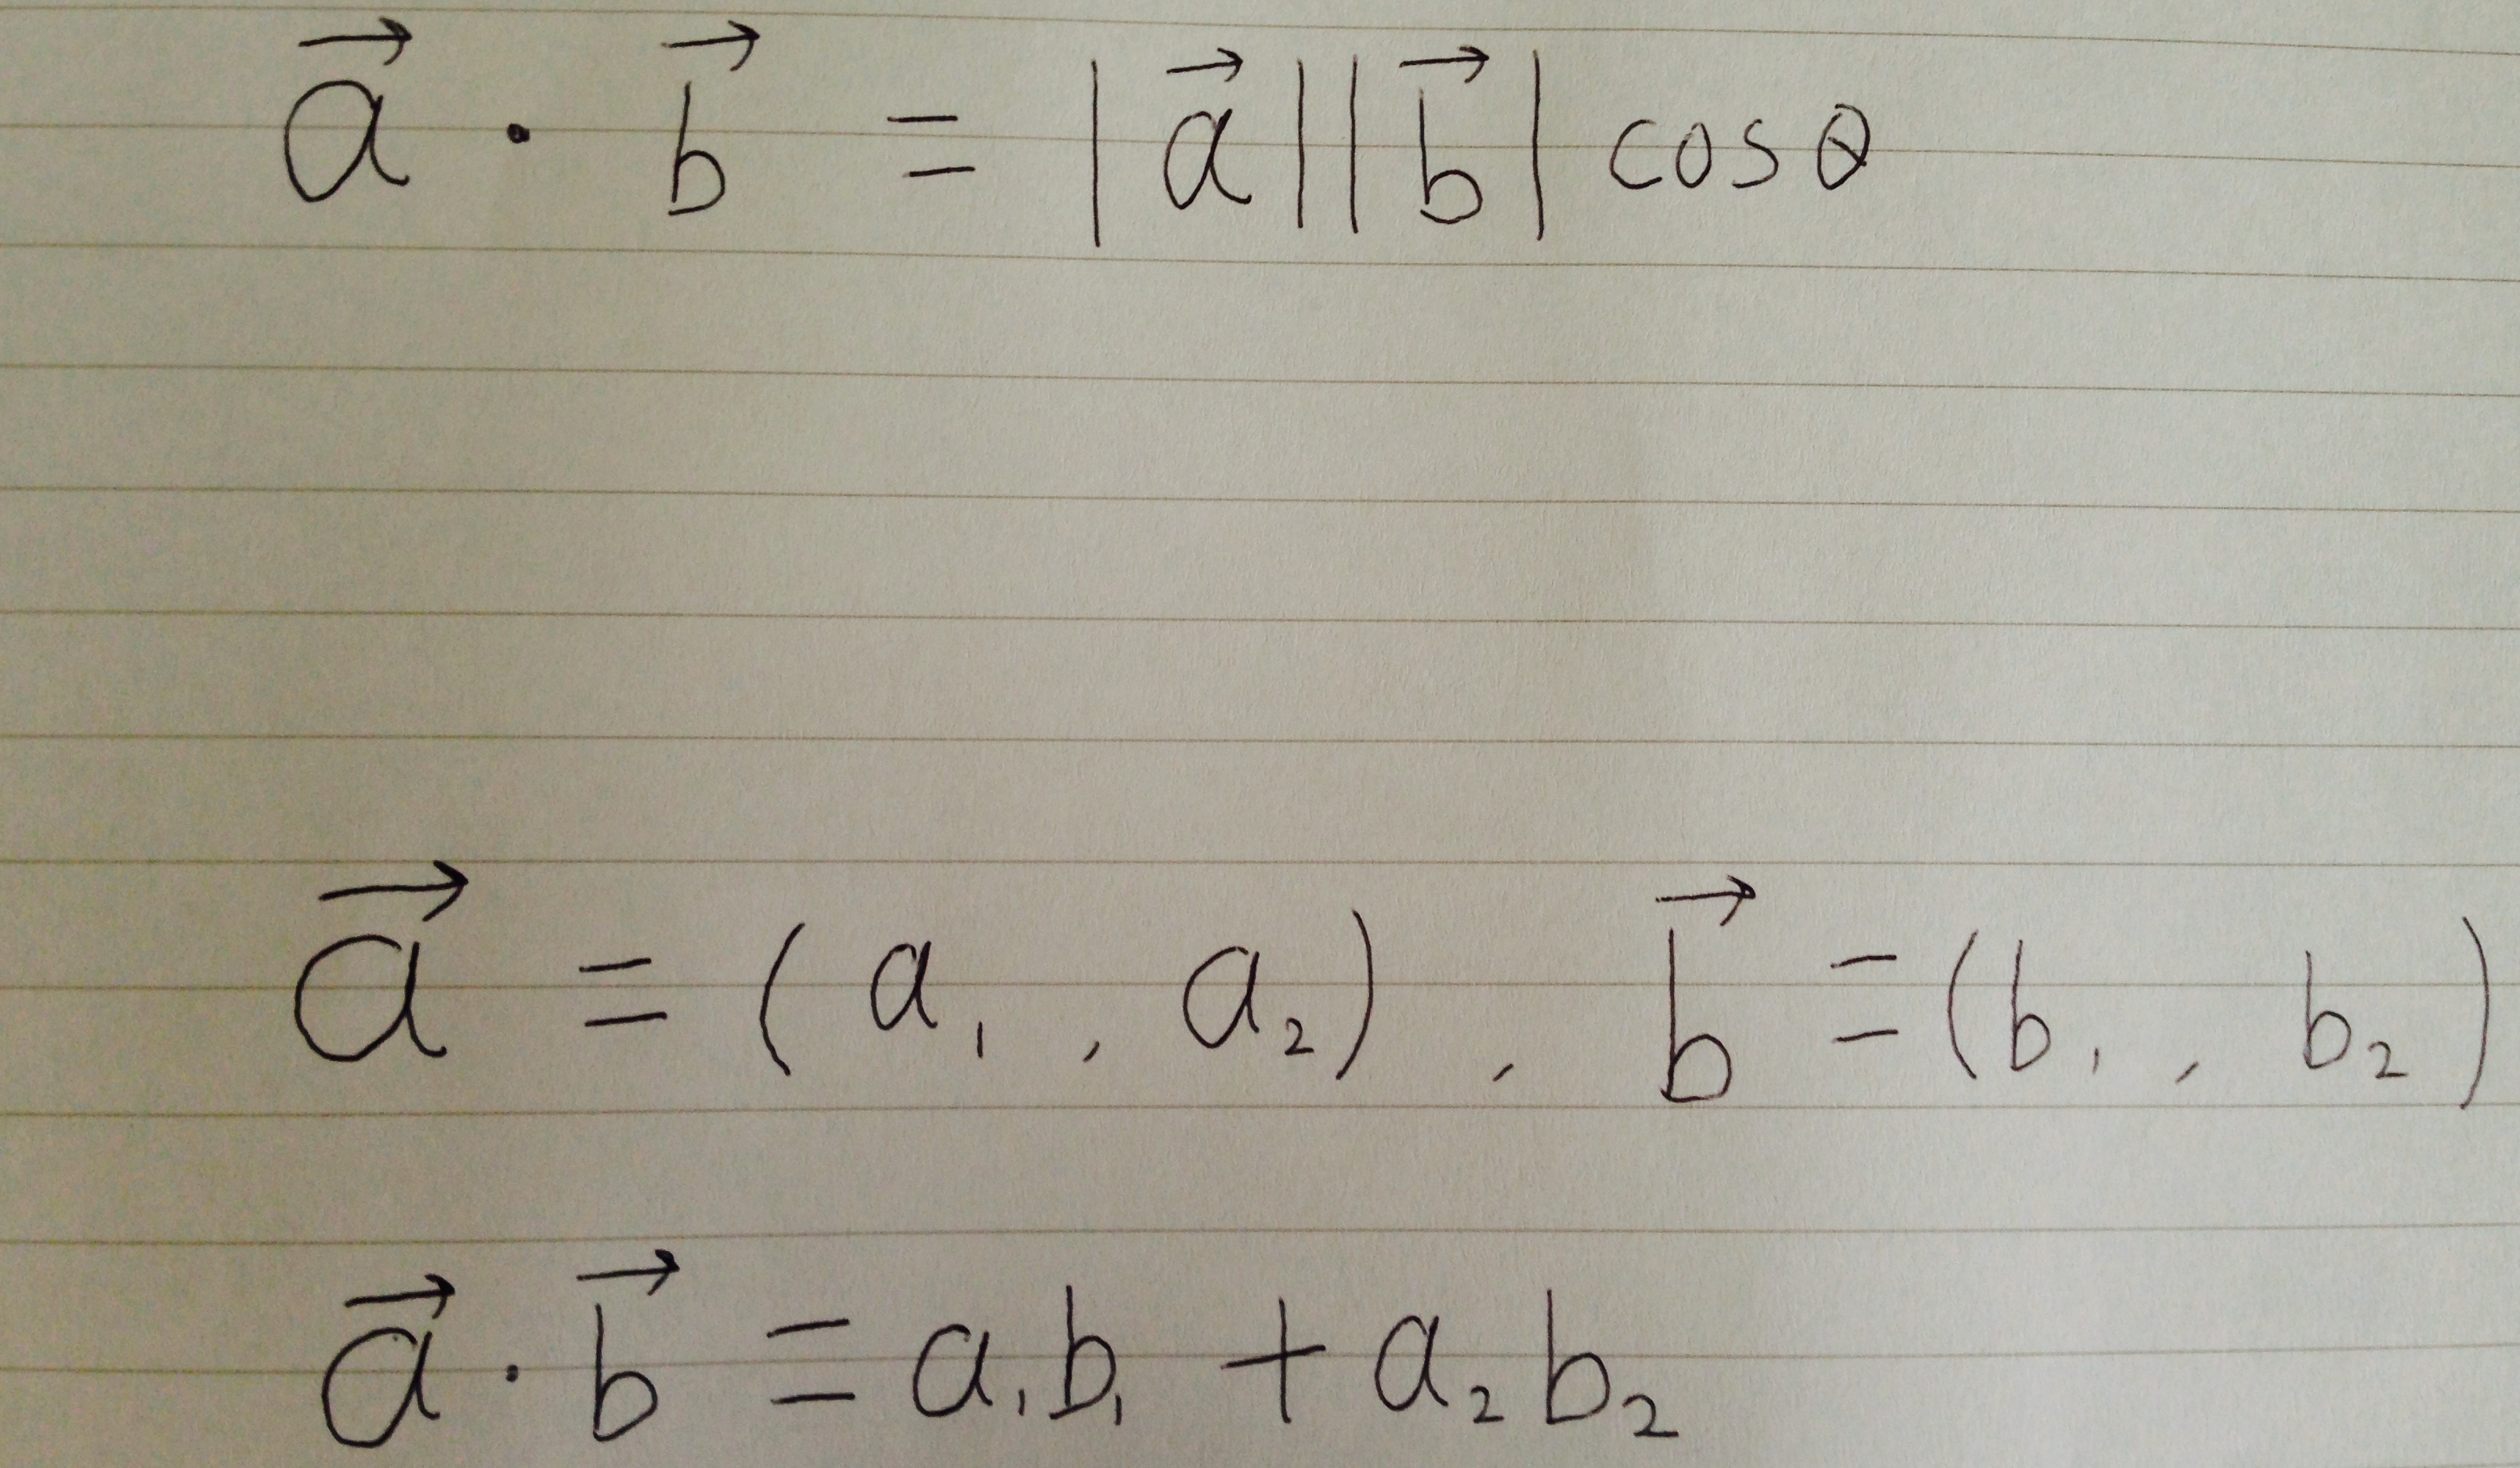 $\vec{a} \cdot \vec{b} = |\vec{a}||\vec{b}| \cos\theta$
$\vec{a} = (a_1, a_2), \vec{b} = (b_1, b_2)$
$\vec{a} \cdot \vec{b} = a_1 b_1 + a_2 b_2$